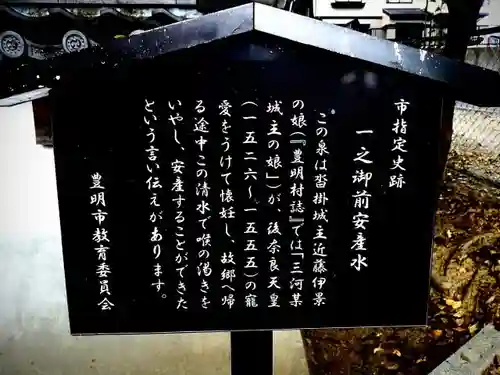 市指定史跡
一之御前安産水
この泉は沓掛城主近藤伊景
の娘（『豊明村誌』では「三河某
城主の娘」）が、後奈良天皇
（一五二六～一五五五）の寵
愛をうけて懐妊し、故郷へ帰
る途中この清水で喉の渇きを
いやし、安産することができた
という言い伝えがあります。
豊明市教育委員会